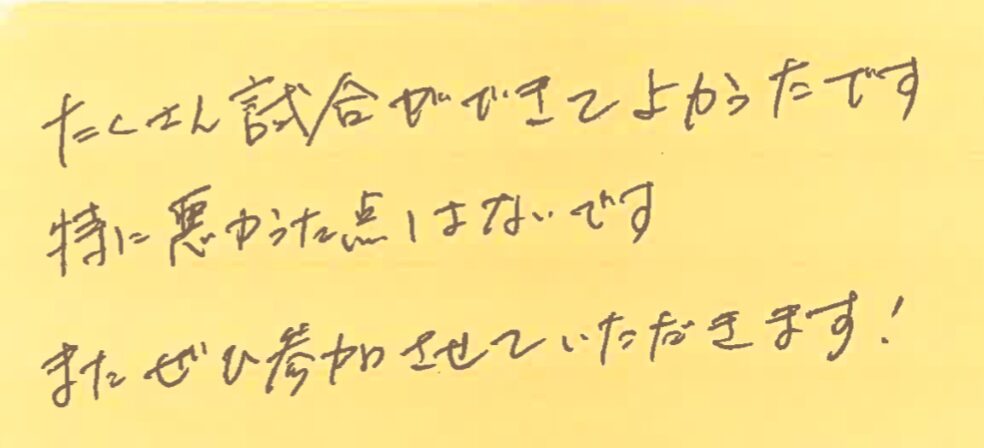 たくさん試合ができてよかったです
特に悪かった点はないです
またぜひ参加させていただきます!